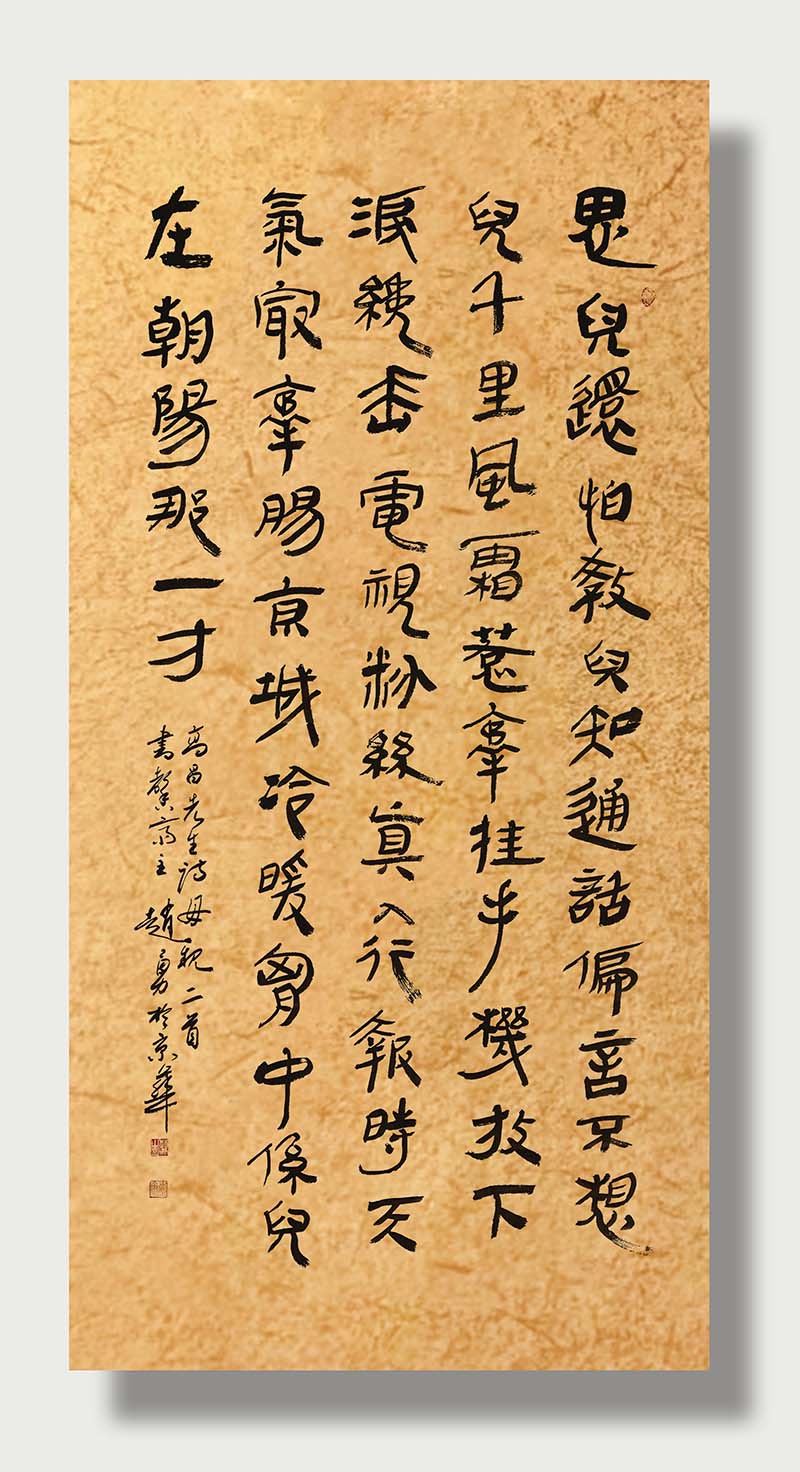 思兒還怕教兒知通話偏言不想
兒千里風霜惹牽挂手機放下
淚纔垂電視粉絲真入行報時天
氣最牽腸京城冷暖胸中係兒
在朝陽那一方
高昌先生詩母親二首
書馨齋主 趙勇於京華